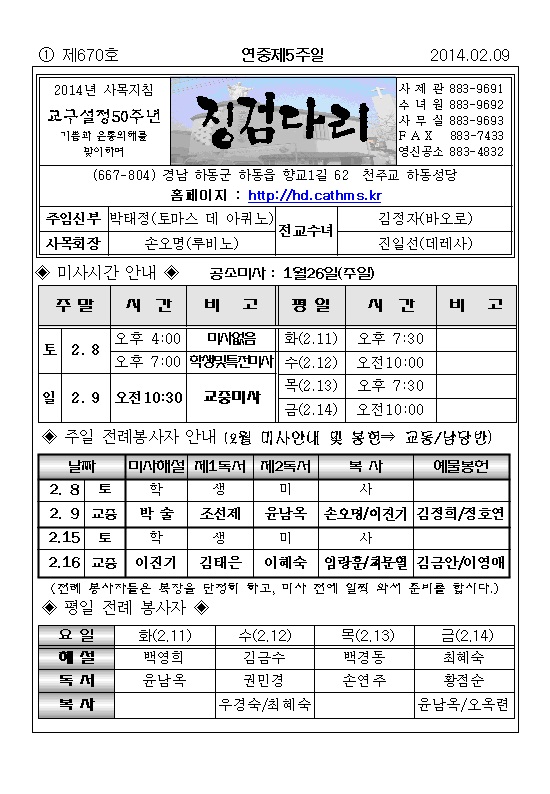 ① 제670호 연중제5주일 2014.02.09
2014년 사목지침
교구설정50주년
기쁨과 은총의해를
맞이하며
징검다리
사 제 관 883-9691
수 녀 원 883-9692
사 무 실 883-9693
F A X 883-7433
영신공소 883-4832
(667-804) 경남 하동군 하동읍 향교1길 62 천주교 하동성당
홈페이지 : http://hd.cathms.kr
주임신부 박태정(토마스 데 아퀴노) 전교수녀 김정자(바오로)
사목회장 손오명(루비노) 진일선(데레사)
◈ 미사시간 안내 ◈ 공소미사 : 1월26일(주일)
주 말 시 간 비 고 평 일 시 간 비 고
토 2. 8 오후 4:00 미사없음 화(2.11) 오후 7:30
오후 7:00 학생및특전미사 수(2.12) 오전10:00
일 2. 9 오전10:30 교중미사 목(2.13) 오후 7:30
금(2.14) 오전10:00
◈ 주일 전례봉사자 안내 (2월 미사안내 및 봉헌⇒ 교동/남당반)
날짜 미사해설 제1독서 제2독서 복 사 예물봉헌
2. 8 토 학 생 미 사
2. 9 교중 박 술 조선제 윤남옥 손오명/이진기 김정희/정호연
2.15 토 학 생 미 사
2.16 교중 이진기 김태은 이혜숙 김금안/이영애
(전례 봉사자들은 복장을 단정히 하고, 미사 전에 일찍 와서 준비를 합시다.)
◈ 평일 전례 봉사자 ◈
요 일 화(2.11) 수(2.12) 목(2.13) 금(2.14)
해 설 백영희 김금수 백경동 최혜숙
독 서 윤남옥 권민경 손연주 황점순
복 사 우경숙/최혜숙 윤남옥/오옥련